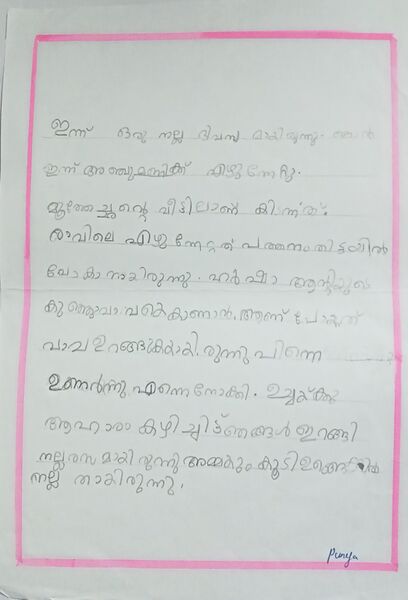 ഇന്ന് ഒരു നല്ല ദിവസ മായിരുന്നു. ഞാൻ
ഇന്ന് അഞ്ചുമണിക്ക് എഴുന്നേറ്റു.
മൂത്തച്ചൻ്റെ വീടിലാണ് കിടന്ന്ത്.
രാവിലെ എഴുന്നേറ്റത് പത്തനംതിട്ടയിൽ
പോകാനായിരുന്നു. ഹർഷാ ആന്റിയുടെ
കുഞ്ഞുവാവയെകാണാൻ. ആണ് പോയത്
വാവ ഉറങ്ങുകയായി. രുന്നു പിന്നെ
ഉണർന്നു എന്നെ നോക്കി. ഉച്ചയ്ക്ക്
ആഹാരാ കഴിച്ചിട്ട് ഞങ്ങൾ ഇറങ്ങി
നല്ല രസ മായി രുന്നു അമ്മകും കൂടി
നല്ല തായിരുന്നു.
Punya